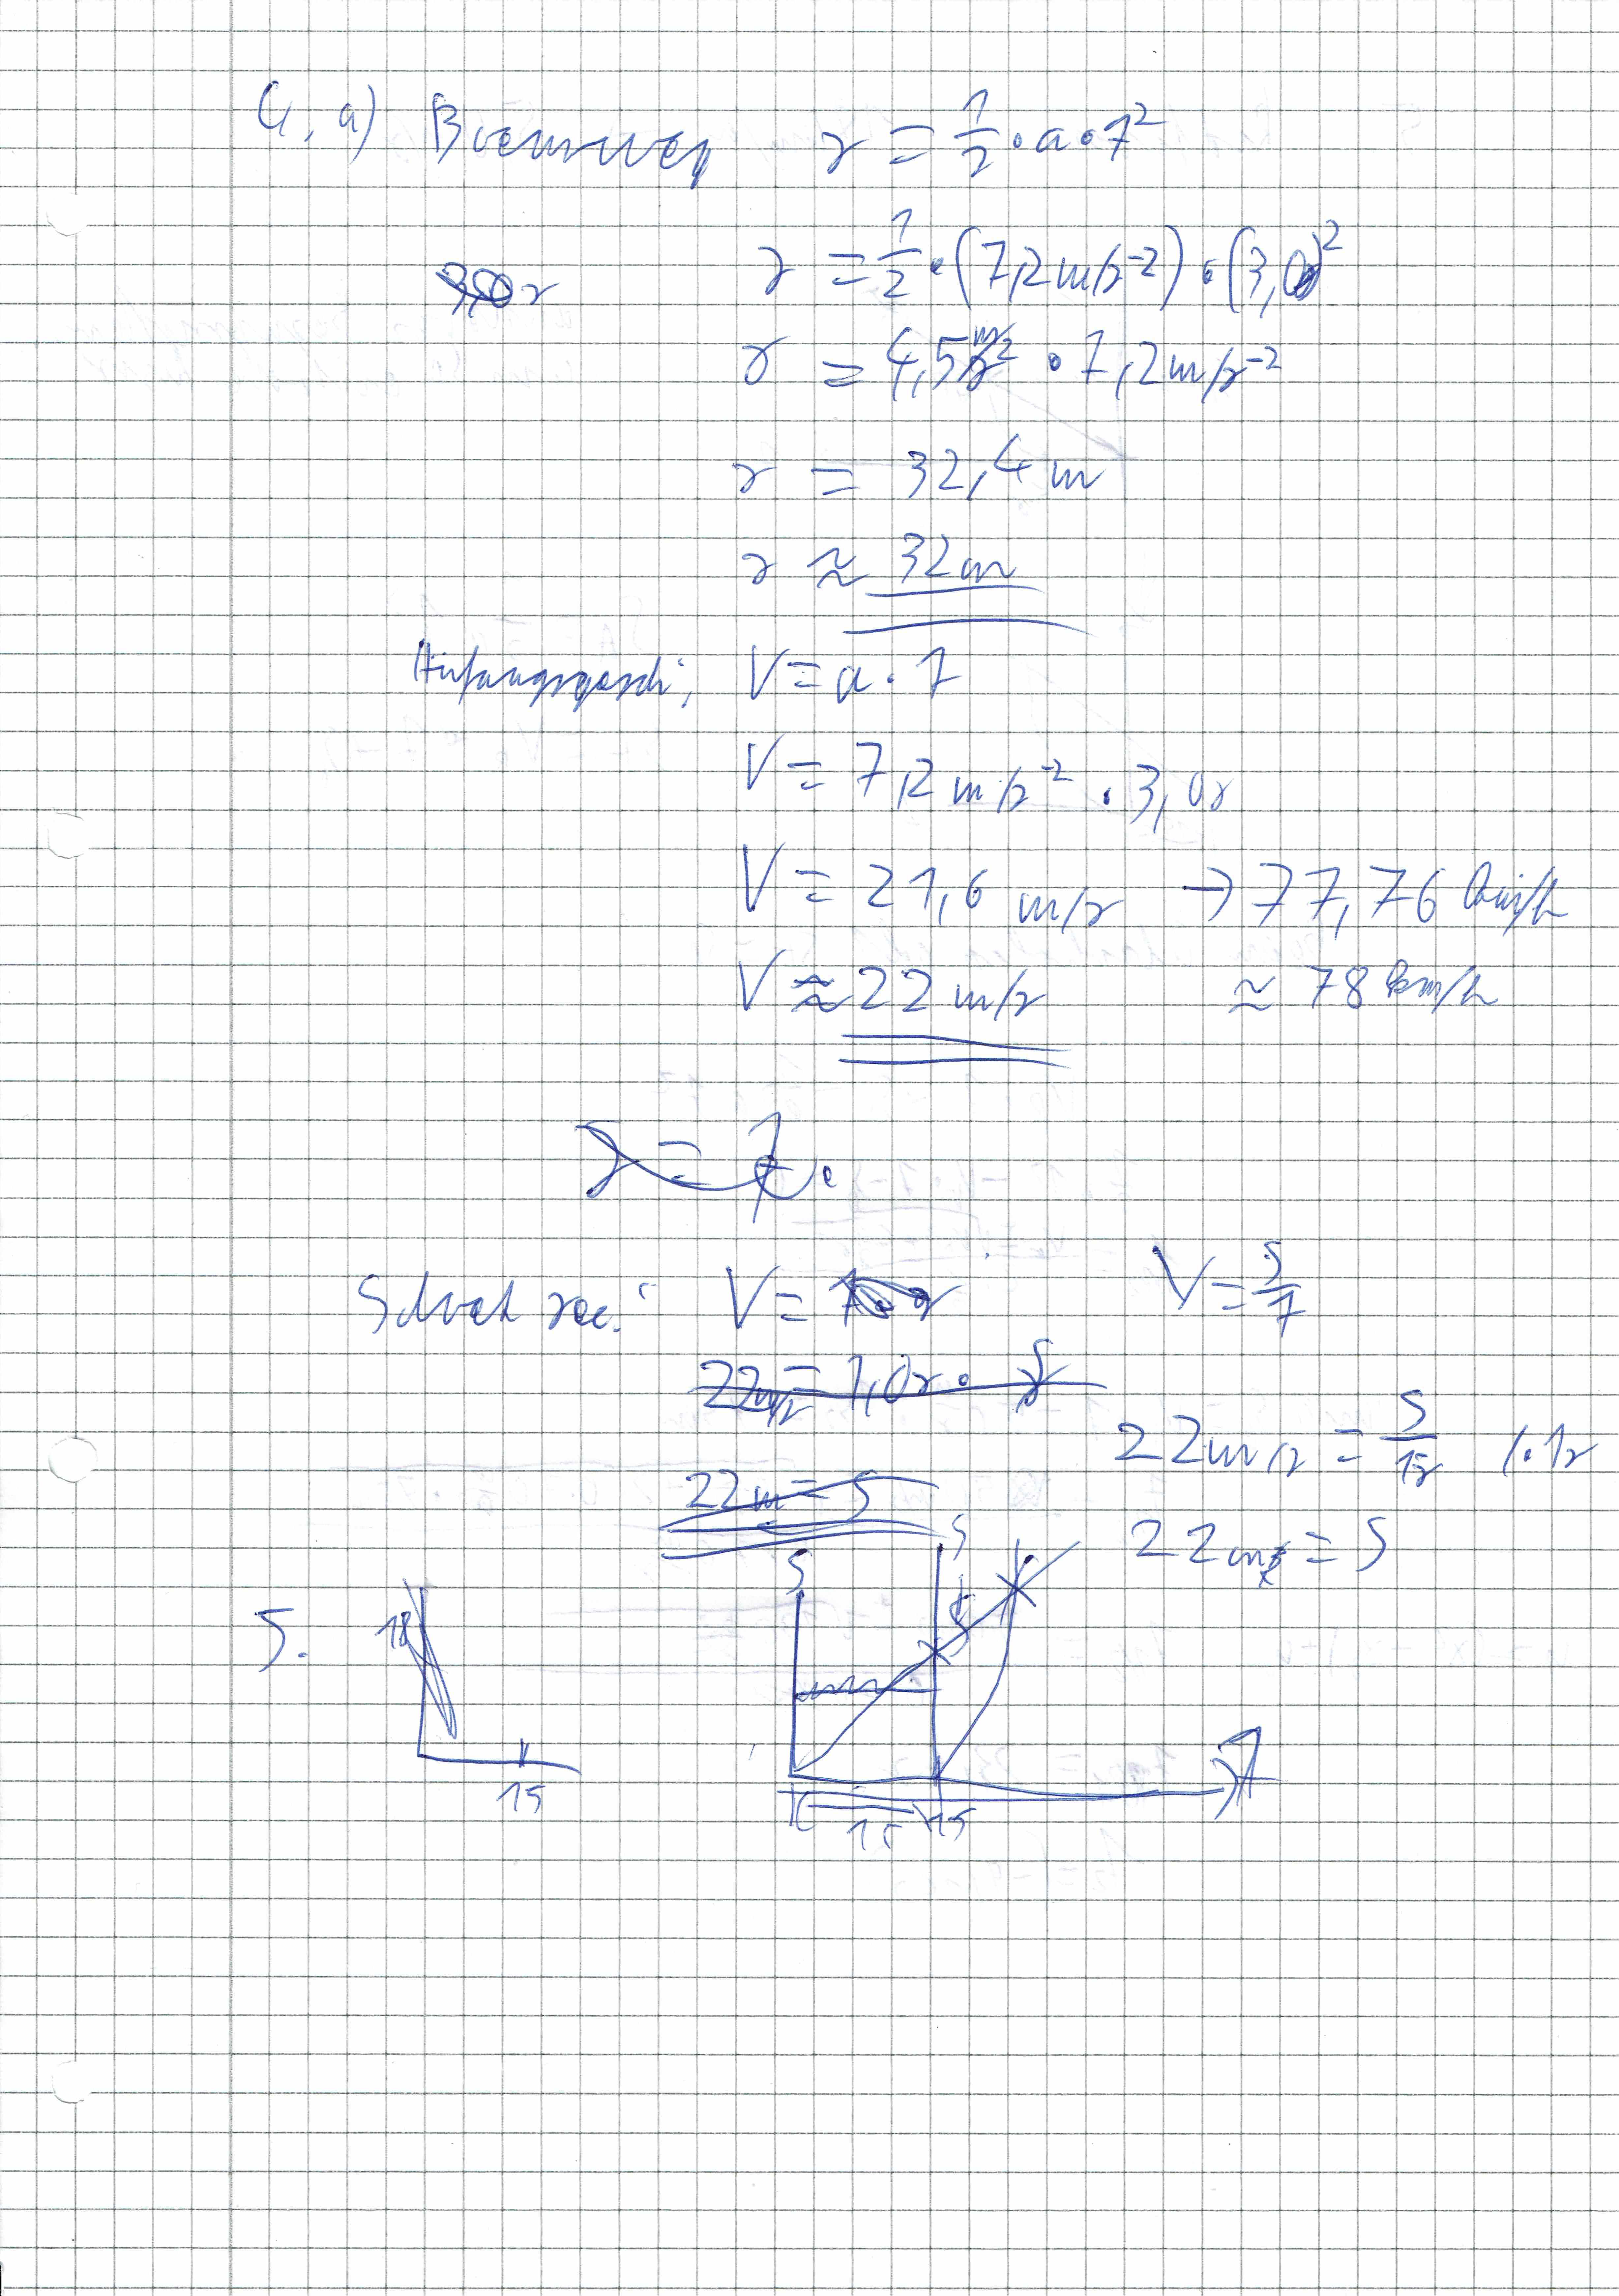 4, a) Bremsweg s = 1/2 · a · t²
s = 1/2 · (7,2 m/s⁻²) · (3,0)²
s = 4,5 s² · 7,2 m/s⁻²
s = 32,4 m
s ≈ 32 m
Anfangsgeschi, V = a · t
V = 7,2 m/s⁻² · 3,0s
V = 21,6 m/s → 77,76 km/h
V ≈ 22 m/s ≈ 78 km/h
V = V = S/t
22m/s = 1,0s · S
22 m/s = S/1s /·1s
22m = S
22m = S
5. 18
15
S S
15 15 t